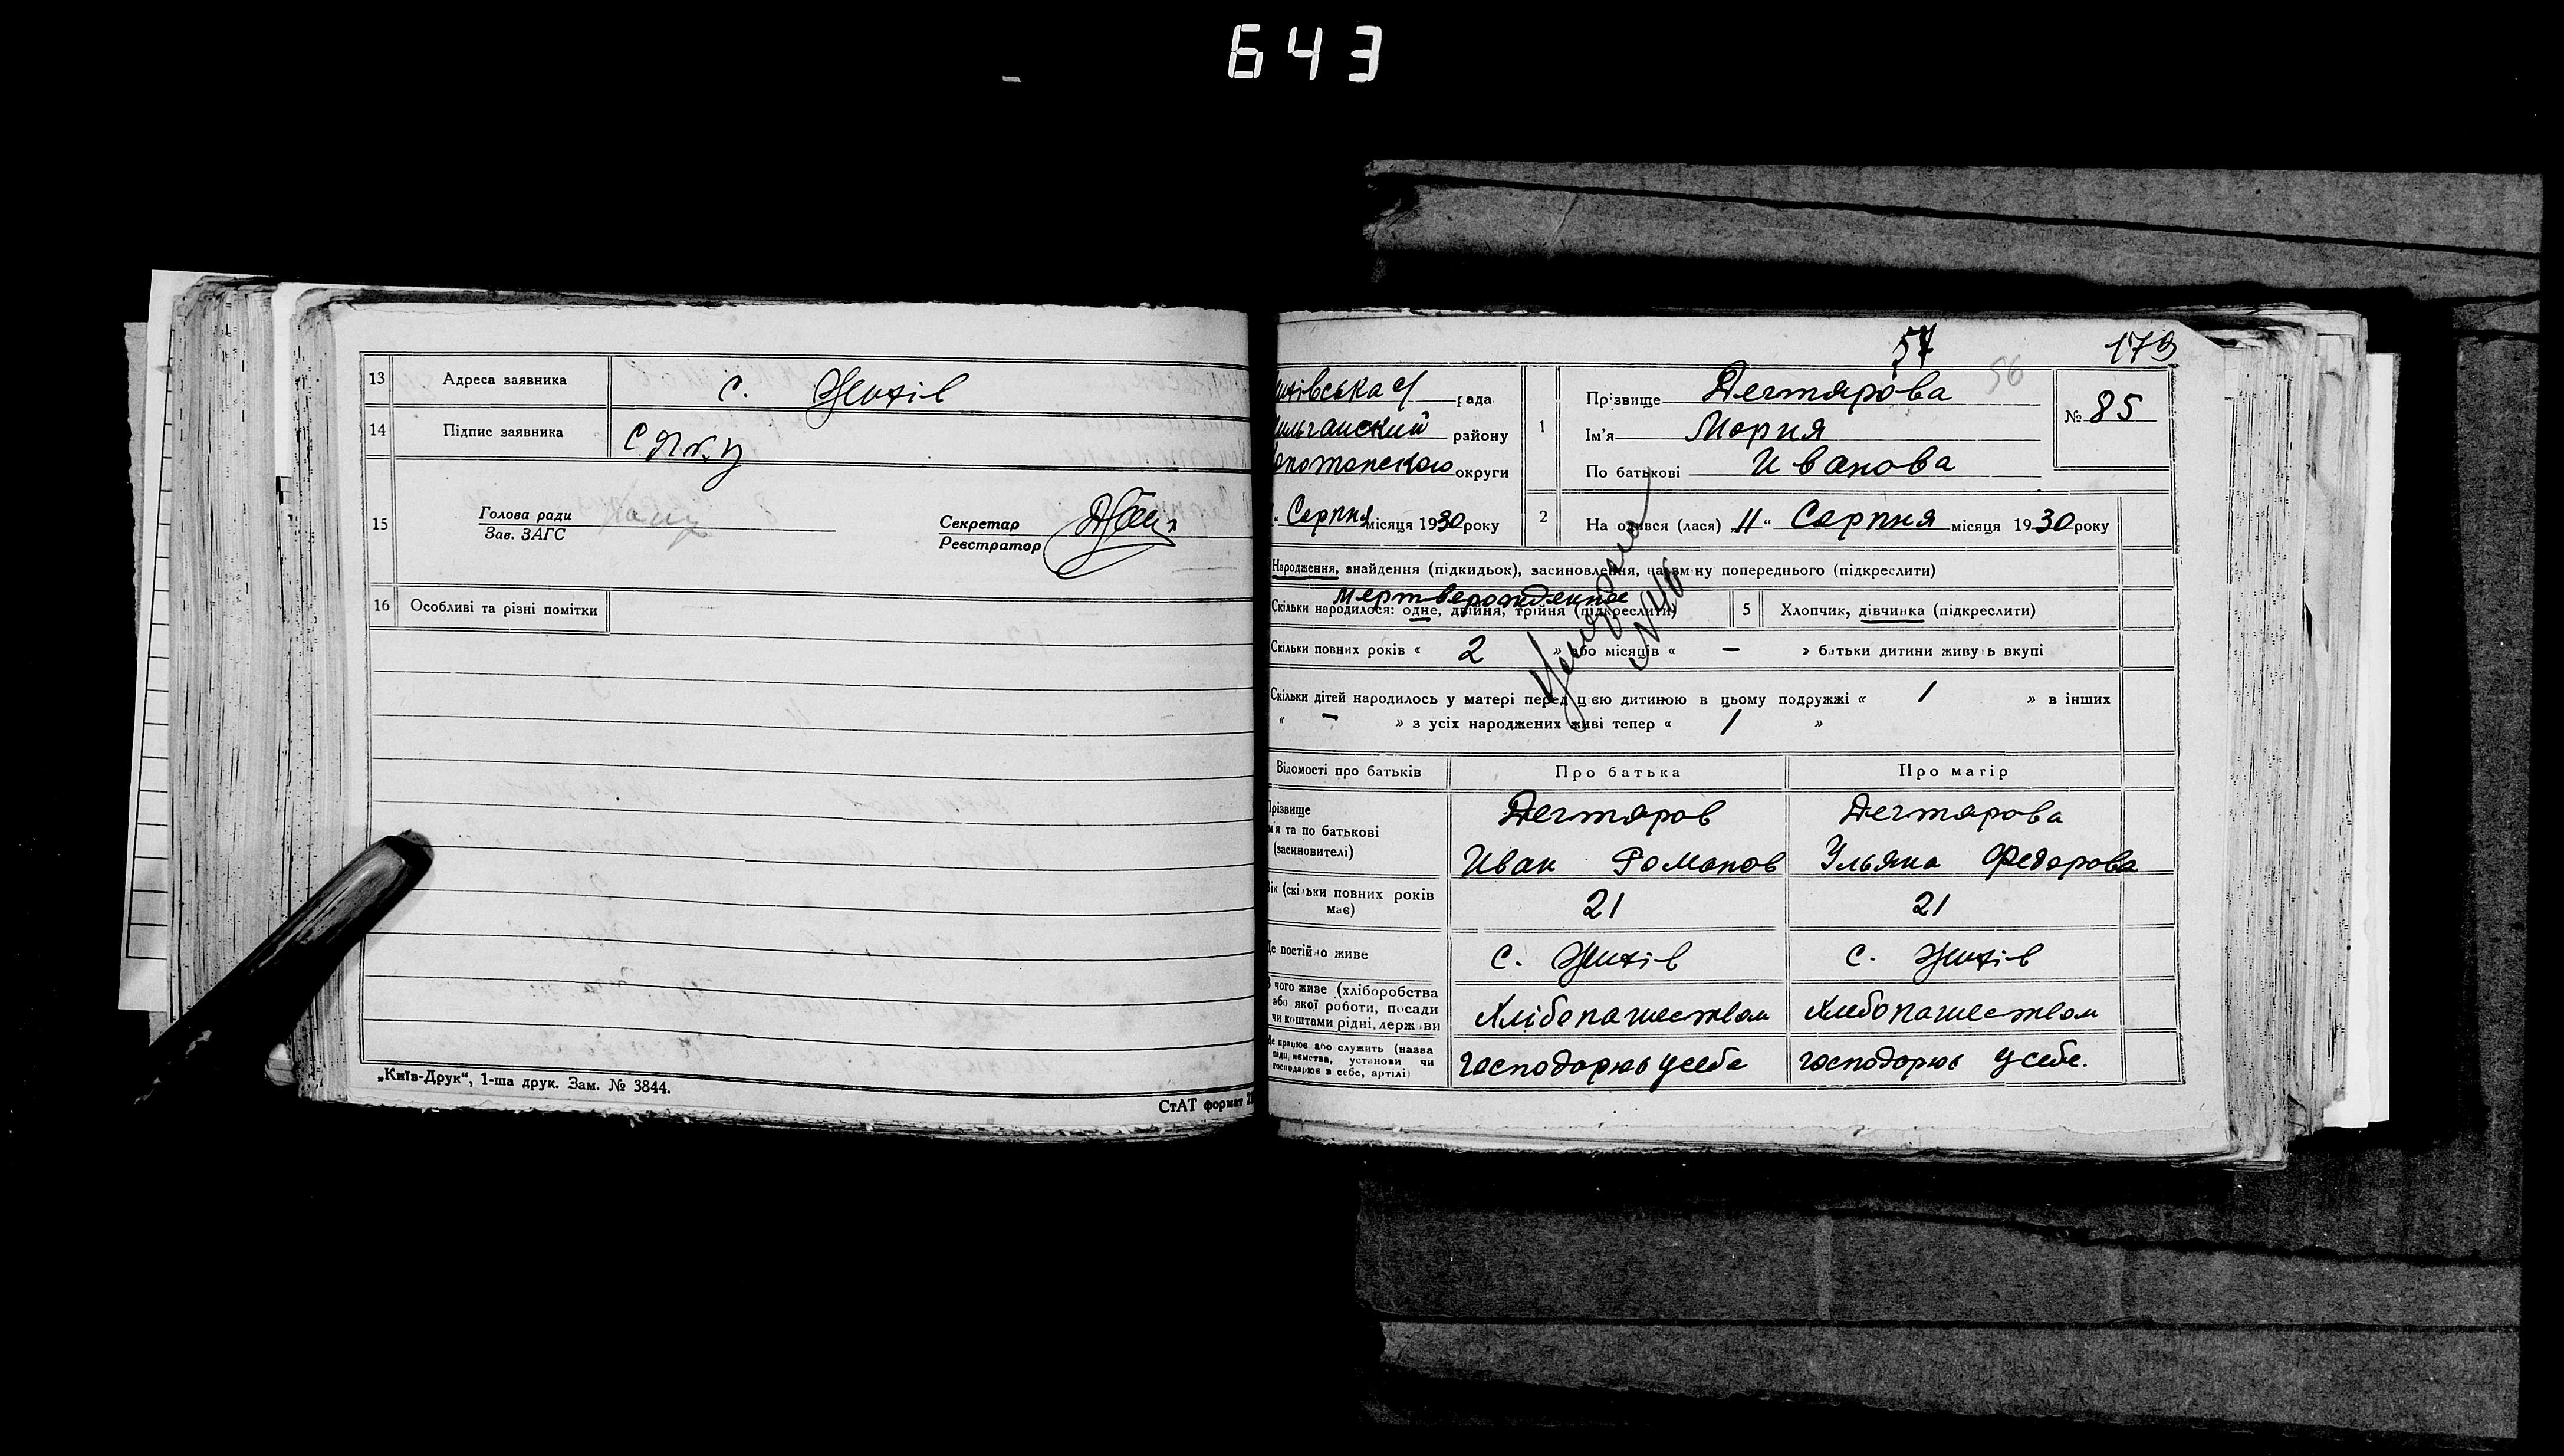 643
13 Адреса заявника с. Жихів
14 Підпис заявника
15 Голова ради
Зав. ЗАГС
Секретар
Реєстратор
16 Особливі та різні помітки
„Київ-Друк“, 1-ша друк. Зам. № 3844.
СтАТ формат
57 179
56
рада
району
округи
Серпня місяця 1930 року
1 Прізвище Дегтярова
Ім'я Мория
По батькові Иванова
№ 85
2 На одився (лася) „11“ Серпня місяця 1930 року
Народження, знайдення (підкидьок), засиновлення, на зміну попереднього (підкреслити)
мертверожденное
Скільки народилося: одне, двійня, трійня (підкреслити) 5 Хлопчик, дівчинка (підкреслити)
Скільки повних років « 2 » або місяців « – » батьки дитини живуть вкупі
Скільки дітей народилось у матері перед цією дитиною в цьому подружжі « 1 » в інших
« – » з усіх народжених живі тепер « 1 »
Відомості про батьків Про батька Про матір
Прізвище Дегтяров Дегтярова
м'я та по батькові
(засиновителі) Иван Романов Ульяна Федорова
Вік (скільки повних років
має) 21 21
Де постійно живе с. Жихів с. Жихів
З чого живе (хліборобства
або якої роботи, посади
чи коштами рідні, держави Хлібопашеством Хлебопашеством
Де працює або служить (назва
підприємства, установи чи
господарює в себе, артілі) господарює у себе господорює у себе.